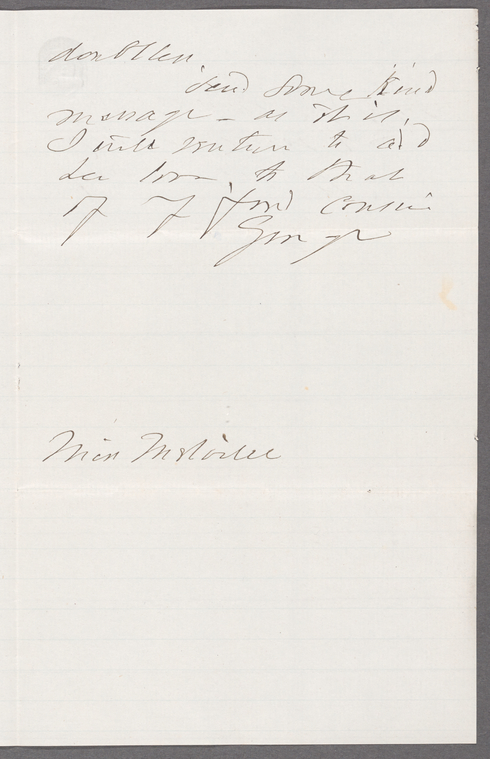 doubtless
send some kind
message - as it is,
I will venture to add
her love to that
of yr fond cousin
George
Miss